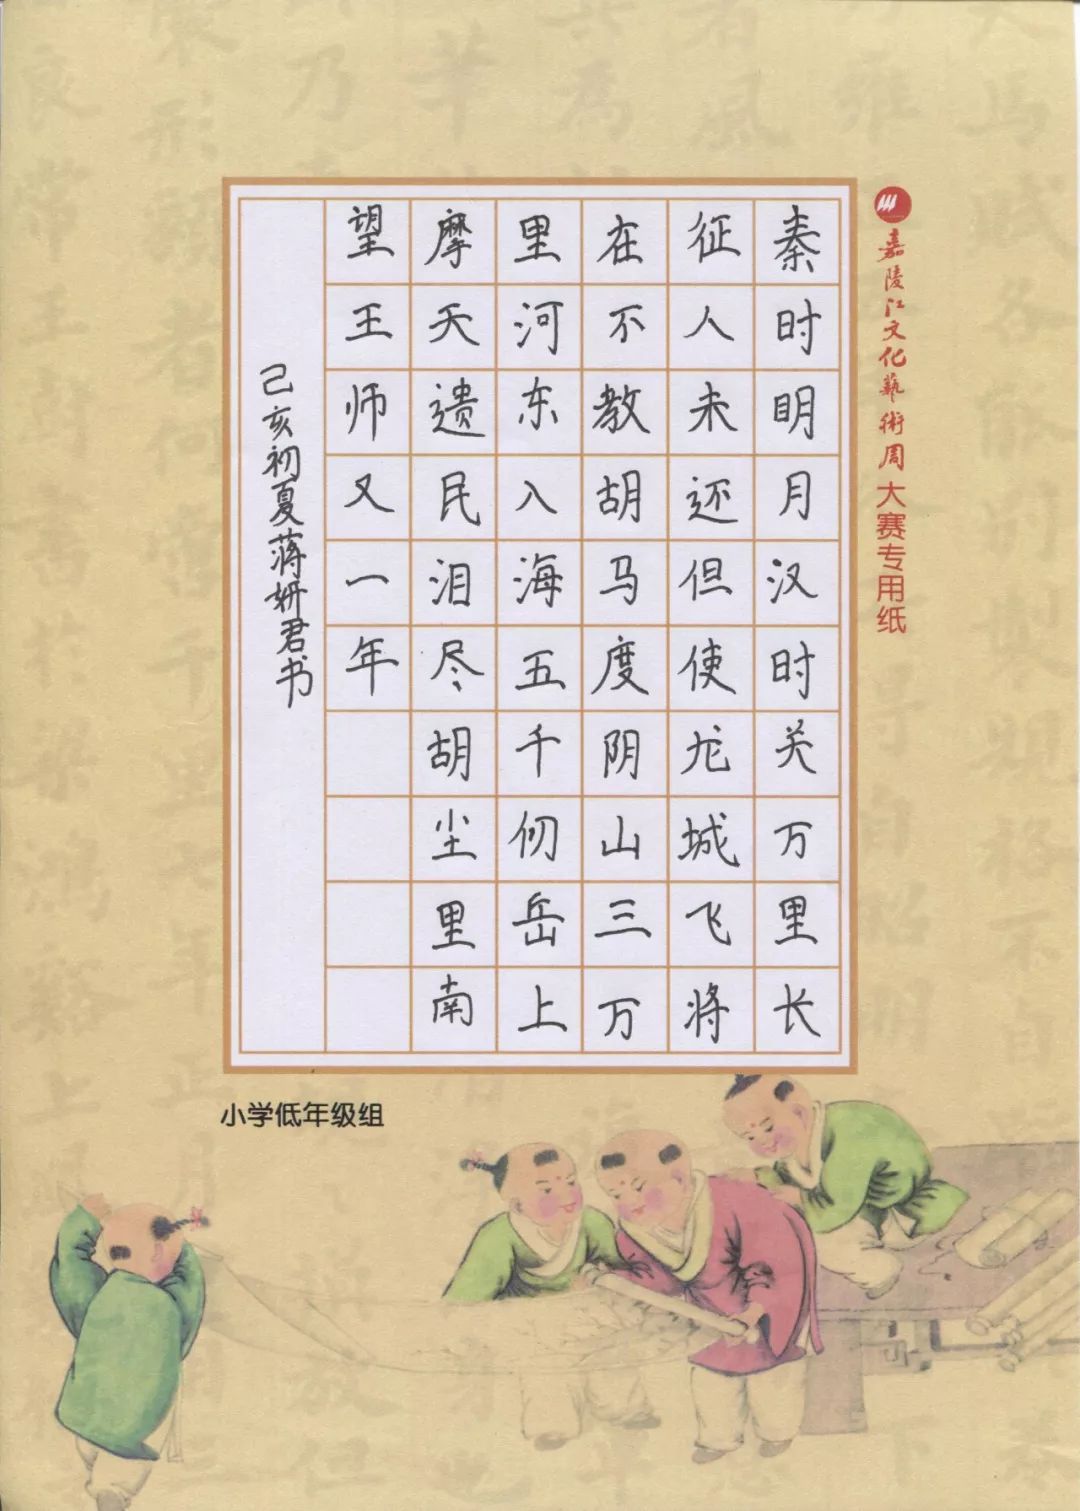 嘉陵江文化藝術周大赛专用纸
秦时明月汉时关万里长
征人未还但使龙城飞将
在不教胡马度阴山三万
里河东入海五千仞岳上
摩天遗民泪尽胡尘里南
望王师又一年
己亥初夏蒋妍君书
小学低年级组